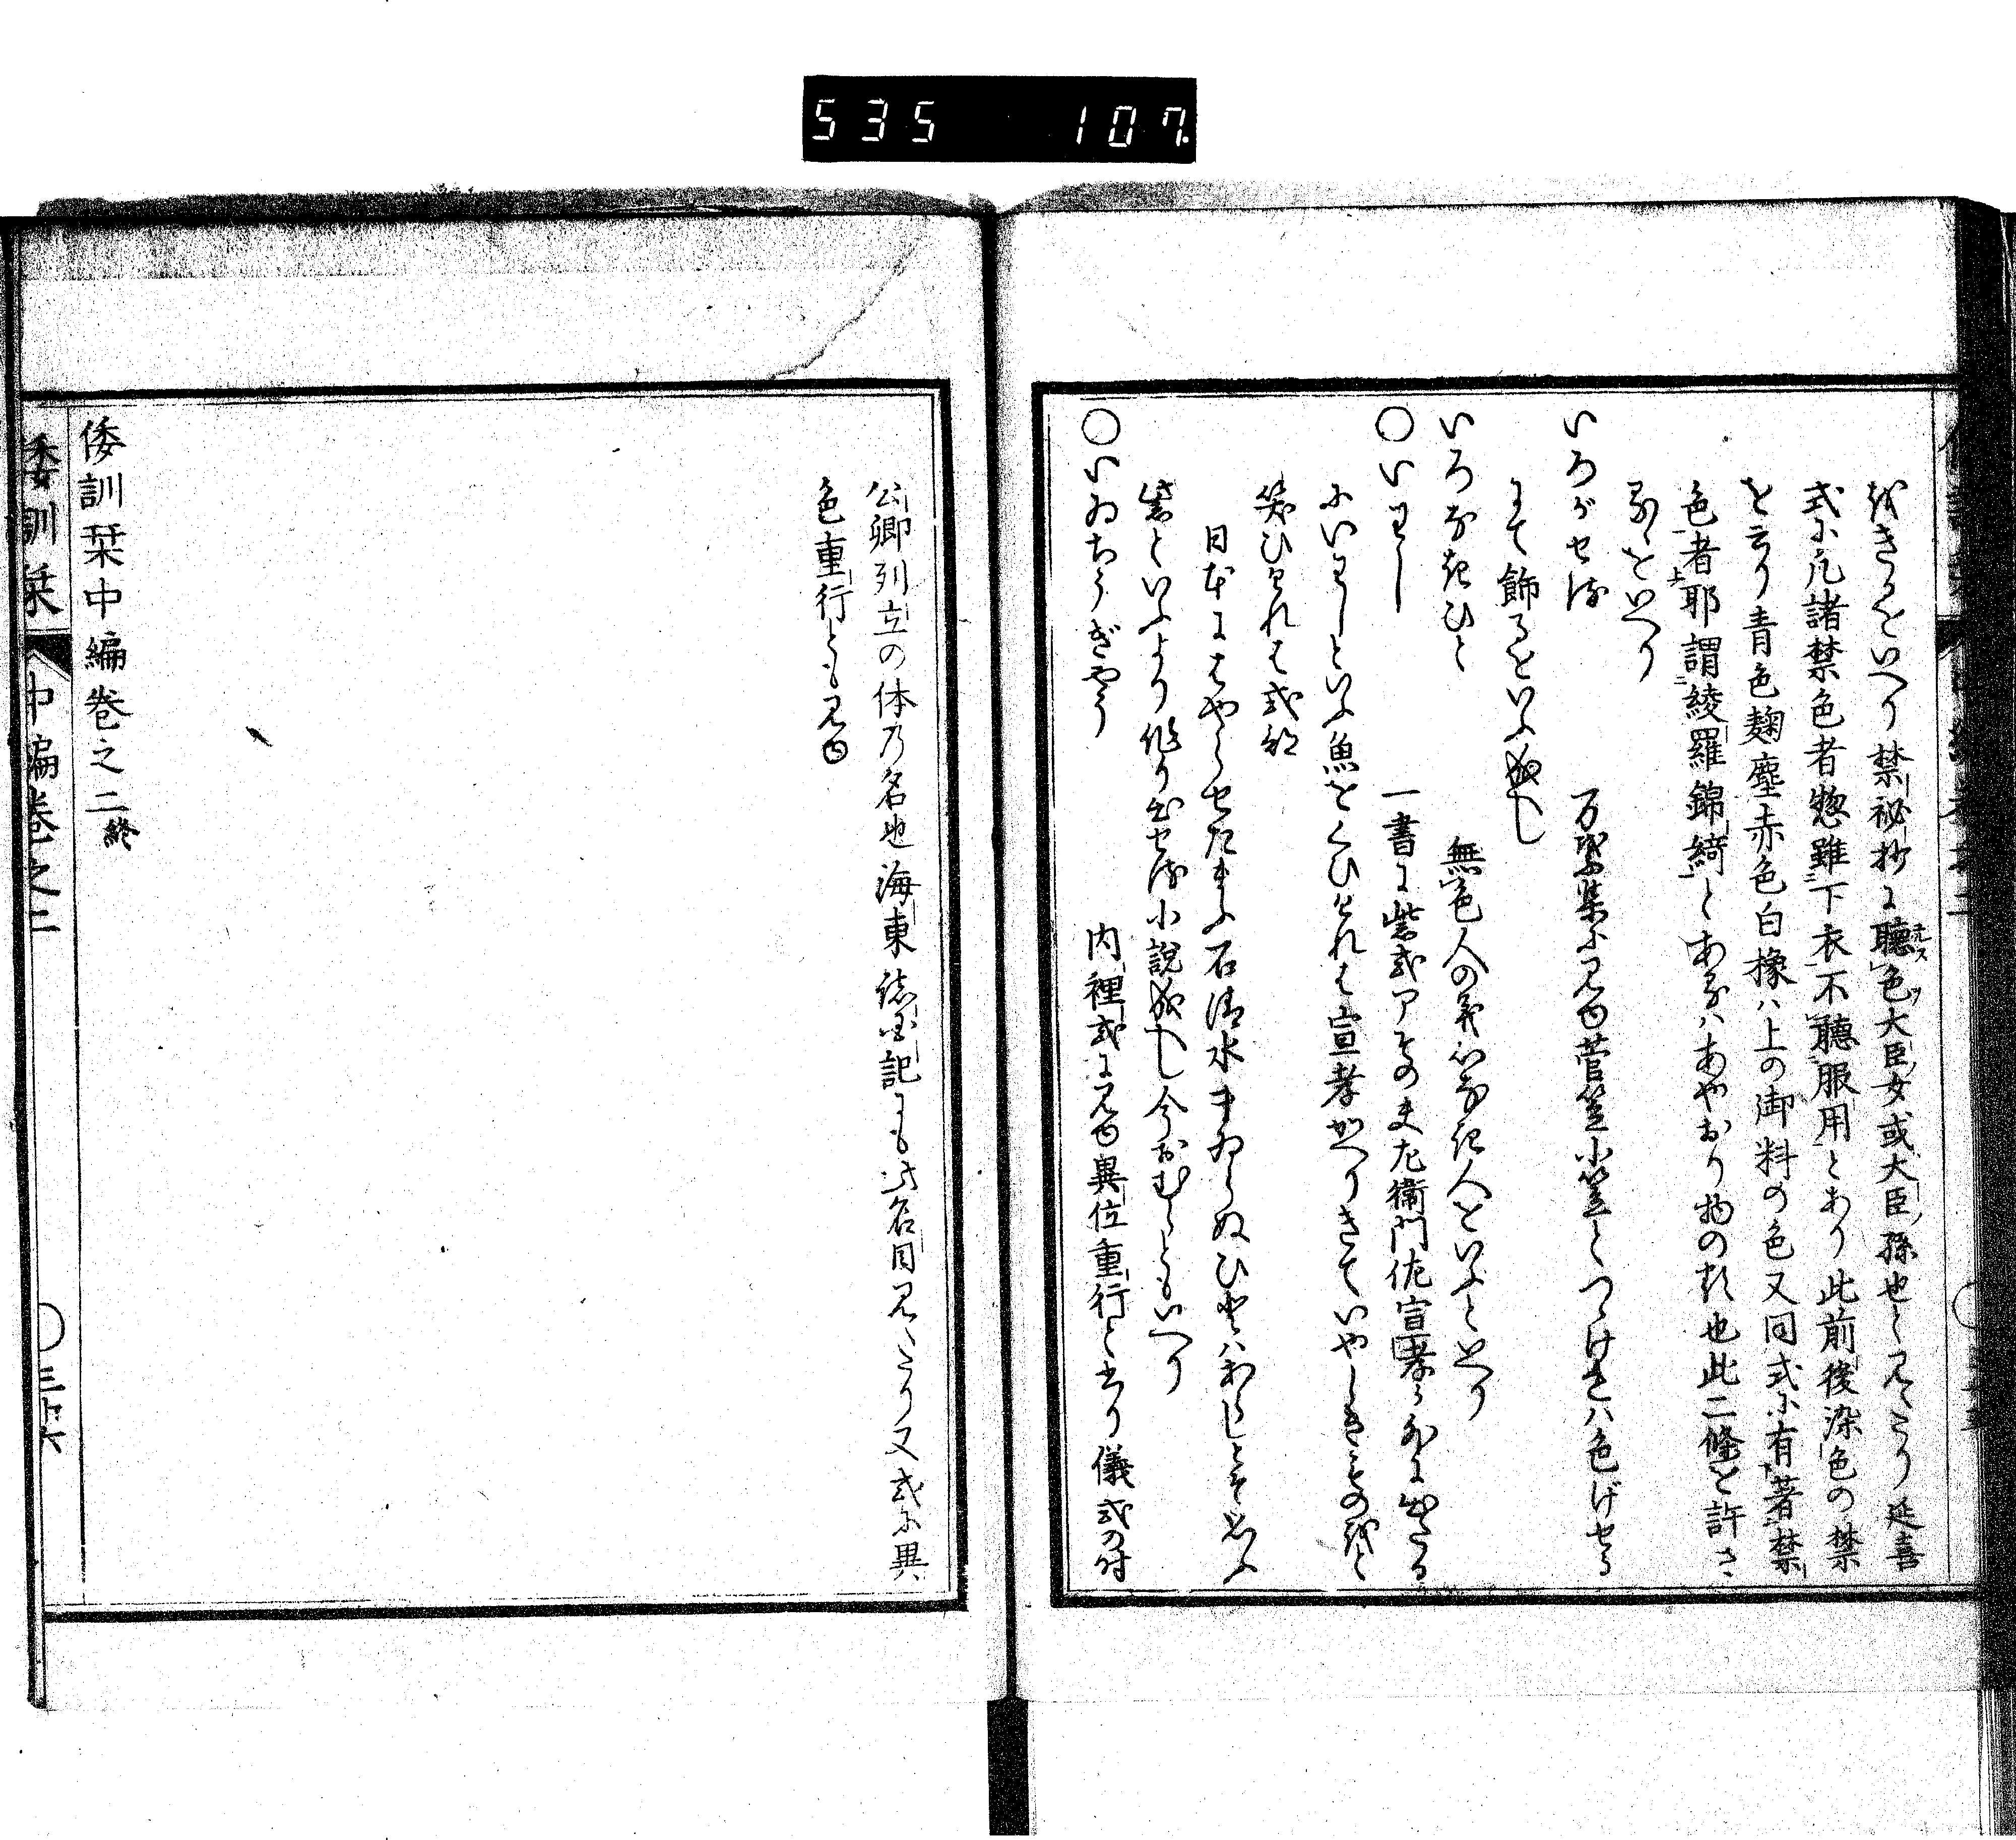 535 107
式に凡諸禁色者惣雖下衣不聴服用とあり此前後染色の禁
を云り青色麹塵赤色白橡ハ上の御料の色又同式に有著禁
色者耶謂綾羅錦綺とあるハあやおり物の類也此二條を許さ
るゝをいへり
いろがせる
万葉集に見ゆ菅笠小笠とつゝけたるハ色げせる
にて飾るをいふ成へし
いろなきひと
無色人の義心なき人をいふといへり
○いわし
一書に紫式アその夫左衛門佐宣孝
にいわしといふ魚をくひけれは宣孝かへりきていやしきもの
笑ひけれは式部
日本にはやらせたまふ石清水まゐらぬひとハあらしとそ思ふ
紫といふより作り出せる小説成へし今おむらともいへり
○いゐちうぎやう
内裡式に見ゆ異位重行と書り儀式の付
公卿列立の体乃名也海東諸国記にも此名目見えたり又式に異
色重行とも見ゆ
倭訓栞中編巻之二終
倭訓栞 中編巻之二 三十六